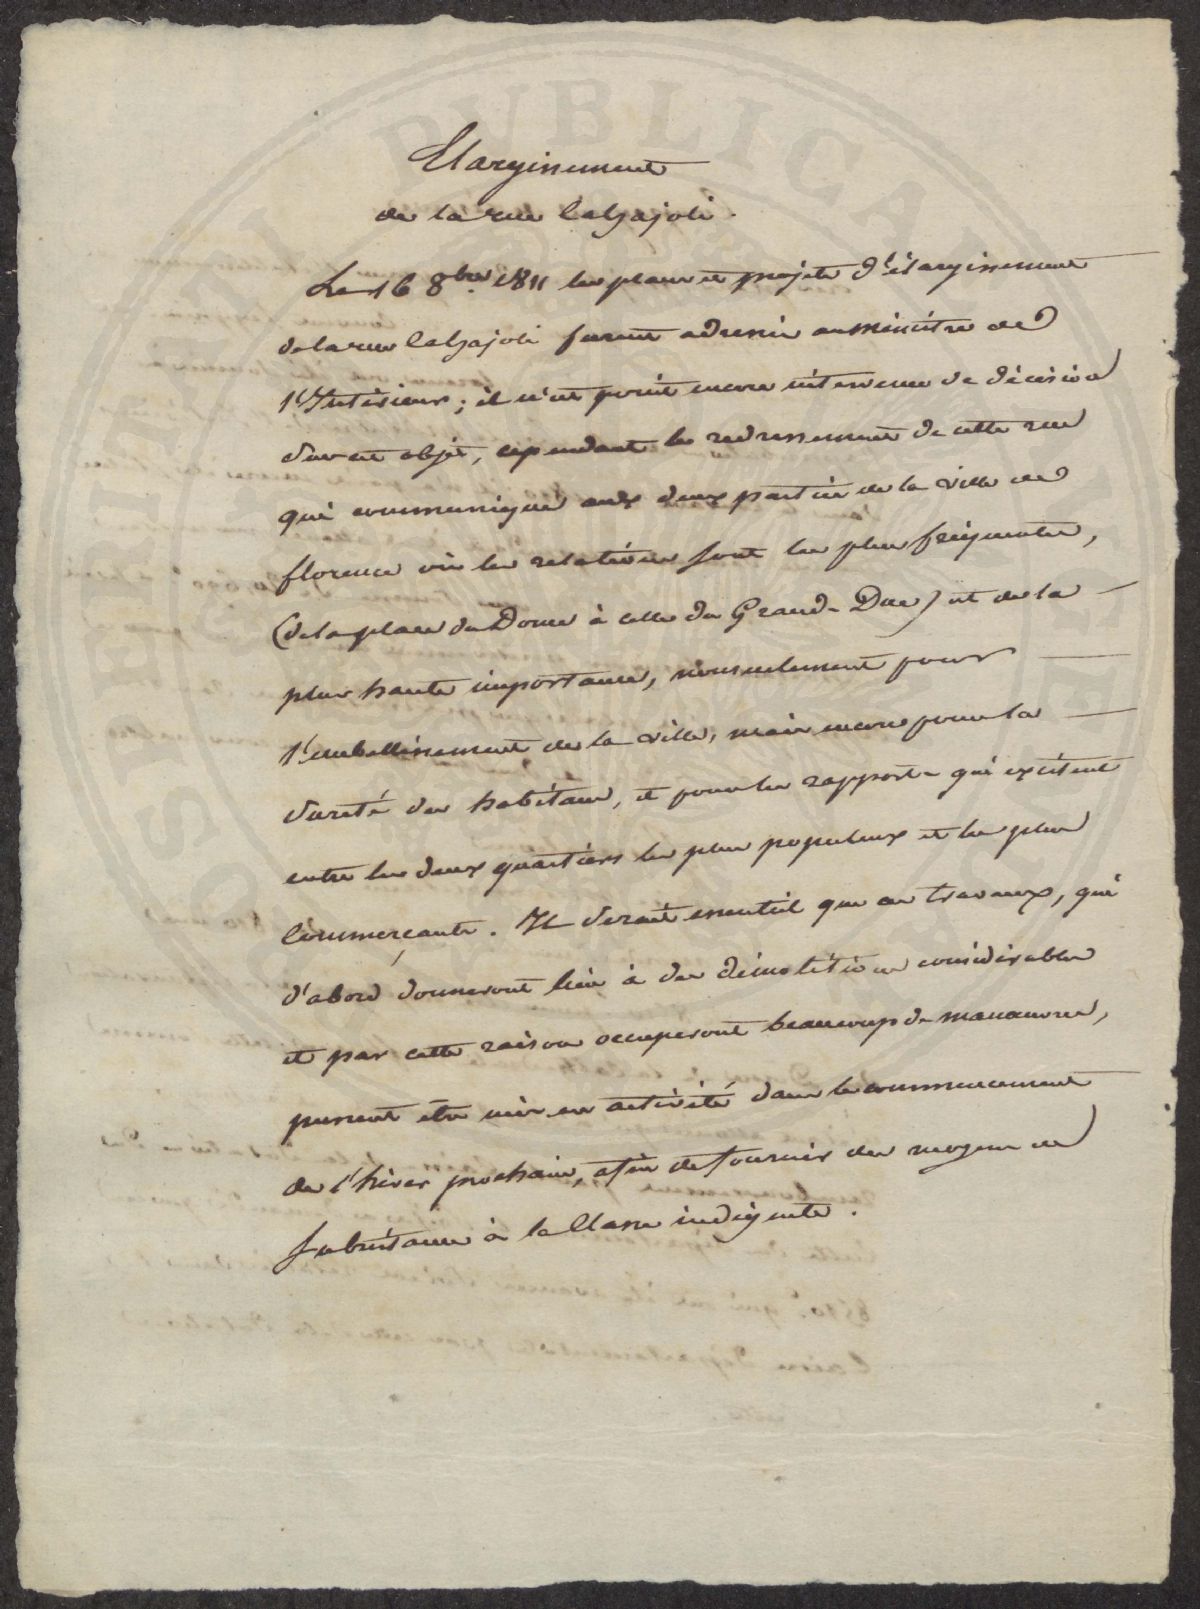 Elargissement
de la rue Calzajoli.
Le 16 8bre 1811 les plans et projets d'élargissement
de la rue Calzajoli furent adressés au Ministre de
l'Intérieur; il n'est point encore intervenu de décision
sur cet objet, cependant le redressement de cette rue
qui communique aux deux parties de la ville de
florence où les relations sont les plus fréquentes,
(de la place du Dome à celle du Grand-Duc) est de la
plus haute importance, nonseulement pour
l'embellissement de la ville, mais encore pour la
sureté des habitans, et pour les rapports qui existent
entre les deux quartiers les plus populeux et les plus
Commerçants. Il serait essentiel que ces travaux, qui
d'abord donneront lieu à des démolitions considérables
et par cette raison occuperont beaucoup de manœuvres,
pussent être mis en activité dans le commencement
de l'hiver prochain, afin de fournir des moyens de
subsistance à la Classe indigente.